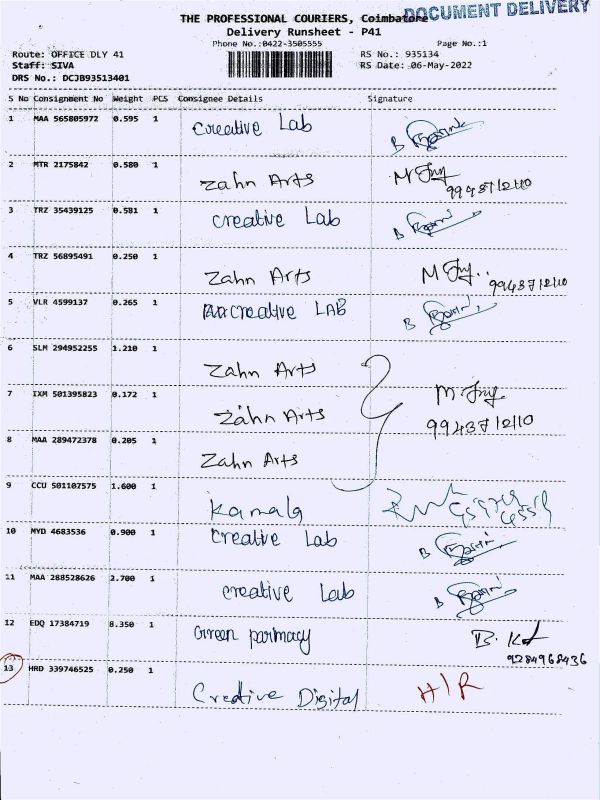 DOCUMENT DELIVERY
THE PROFESSIONAL COURIERS, Coimbatore
Delivery Runsheet - P41
Phone No.:0422-3505555 Page No.:1
Route: OFFICE DLY 41 RS No.: 935134
Staff: SIVA RS Date: 06-May-2022
DRS No.: DCJB93513401
S No Consignment No Weight PCS Consignee Details Signature
1 MAA 565805972 0.595 1 Creative Lab B
2 MTR 2175842 0.580 1 Zahn Arts M
9943712110
3 TRZ 35439125 0.581 1 Creative Lab B
4 TRZ 56895491 0.250 1 Zahn Arts M
9943712110
5 VLR 4599137 0.265 1 creative LAB B
6 SLM 294952255 1.210 1 Zahn Arts
7 IXM 501395823 0.172 1 Zahn Arts M
9943712110
8 MAA 289472378 0.205 1 Zahn Arts
9 CCU 501107575 1.600 1 Kamala
10 MYD 4683536 0.900 1 Creative Lab B
11 MAA 288528626 2.700 1 creative Lab B
12 EDQ 17384719 8.350 1 Green parmacy B.
9284968436
13 HRD 339746525 0.250 1 Creative Digital H/R